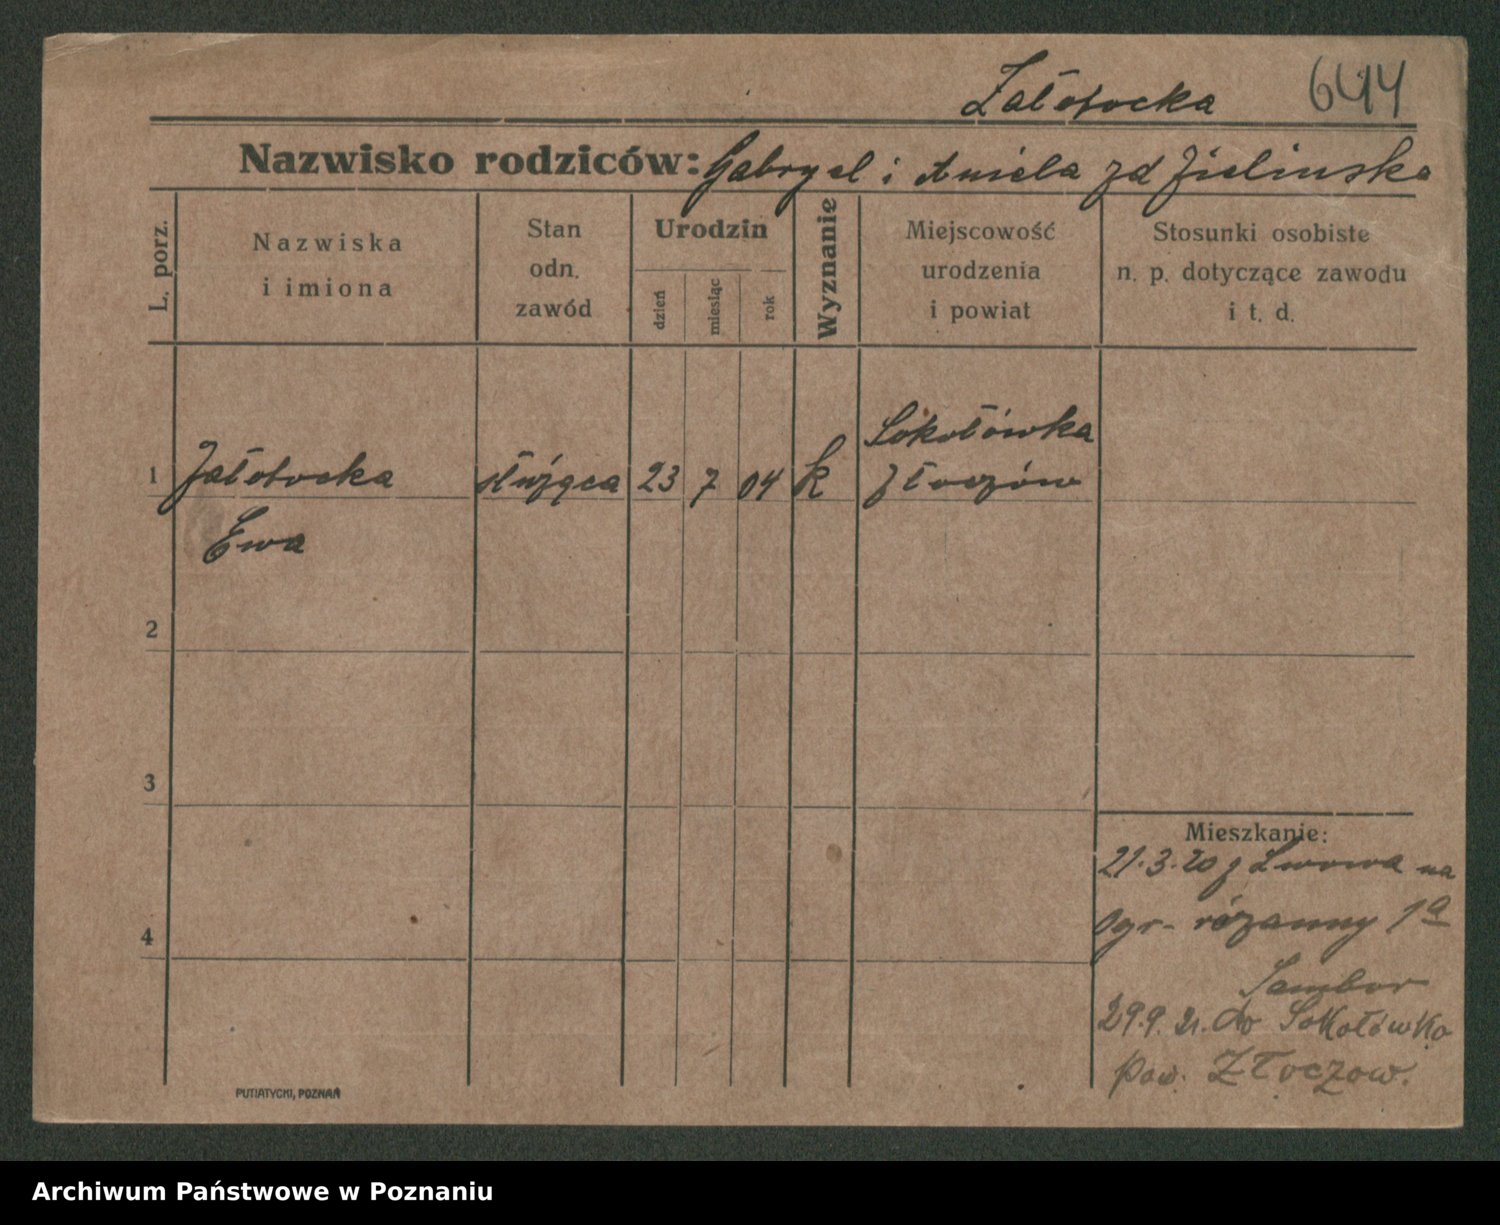 Załotocka 6414
Nazwisko rodziców: Gabryel i Aniela zd Zielinska
L. porz.
Nazwiska
i imiona
Stan
odn.
zawód
Urodzin
dzień
miesiąc
rok
Wyznanie
Miejscowość
urodzenia
i powiat
Stosunki osobiste
n. p. dotyczące zawodu
i t. d.
1 Załotocka służąca 23 7 04 k Sokołówka
Złoczów
Ewa
2
3
4
Mieszkanie:
21.3.20 z Lwowa na
Ogr- różanny 1a
Sambor
29.9.21. do Sokołówka
pow. Złoczow.
PUTIATYCKI, POZNAŃ
Archiwum Państwowe w Poznaniu